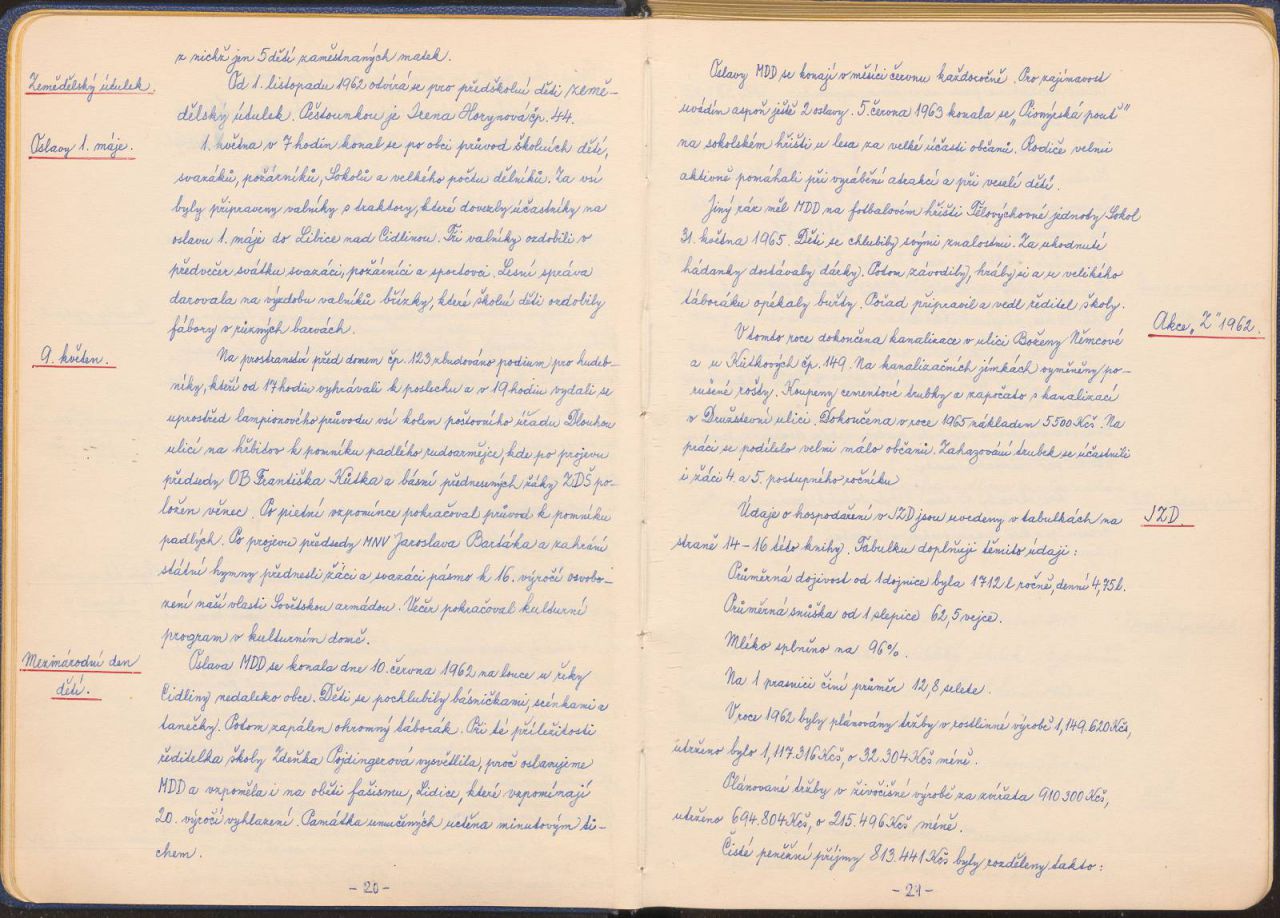 z nichž jen 5 dětí zaměstnaných matek.
Zemědělský útulek.
Od 1. listopadu 1962 otvírá se pro předškolní děti země-
dělský útulek. Pěstounkou je Irena Horynová čp. 44.
Oslavy 1. máje.
1. května v 7 hodin konal se po obci průvod školních dětí,
svazáků, požárníků, Sokolů a velkého počtu dělníků. Za vsí
byly připraveny valníky s traktory, které dovezly účastníky na
oslavu 1. máje do Libice nad Cidlinou. Tři valníky ozdobili v
předvečer svátku svazáci, požárníci a sportovci. Lesní správa
darovala na výzdobu valníků břízky, které školní děti ozdobily
fábory v různých barvách.
9. květen.
Na prostranství před domem čp. 123 zbudováno podium pro hudeb-
níky, kteří od 17 hodin vyhrávali k poslechu a v 19 hodin vydali se
uprostřed lampionového průvodu vsí kolem poštovního úřadu Dlouhou
ulicí na hřbitov k pomníku padlého rudoarmějce, kde po projevu
předsedy OB Františka Kůtka a básní přednesených žáky ZDŠ po-
ložen věnec. Po pietní vzpomínce pokračoval průvod k pomníku
padlých. Po projevu předsedy MNV Jaroslava Bartáka a zahrání
státní hymny přednesli žáci a svazáci pásmo k 16. výročí osvobo-
zení naší vlasti Sovětskou armádou. Večer pokračoval kulturní
program v kulturním domě.
Mezinárodní den
dětí.
Oslava MDD se konala dne 10. června 1962 na louce u řeky
Cidliny nedaleko obce. Děti se pochlubily básničkami, scénkami a
tanečky. Potom zapálen ohromný táborák. Při té příležitosti
ředitelka školy Zdeňka Pojdingerová vysvětlila, proč oslavujeme
MDD a vzpoměla i na oběti fašismu, Lidice, které vzpomínají
20. výročí vyhlazení. Památka umučených uctěna minutovým ti-
chem.
- 20 -
Oslavy MDD se konají v měsíci červnu každoročně. Pro zajímavost
uvádím aspoň ještě 2 oslavy. 5. června 1963 konala se „Pionýrská pouť"
na sokolském hřišti u lesa za velké účasti občanů. Rodiče velmi
aktivně pomáhali při vyrábění atrakcí a při veselí dětí.
Jiný ráz měl MDD na fotbalovém hřišti Tělovýchovné jednoty Sokol
31. května 1965. Děti se chlubily svými znalostmi. Za uhodnutí
hádanky dostávaly dárky. Potom závodily, hrály si a u velikého
táboráku opékaly buřty. Pořad připravil a vedl ředitel školy.
Akce „Z" 1962.
V tomto roce dokončena kanalizace v ulici Boženy Němcové
a u Kůtkových čp. 149. Na kanalizačních jímkách vyměněny po-
rušené rošty. Koupeny cementové trubky a započato s kanalizací
v Družstevní ulici. Dokončena v roce 1965 nákladem 5500 Kčs. Na
práci se podílelo velmi málo občanů. Zahazování trubek se účastnili
i žáci 4. a 5. postupného ročníku
JZD.
Údaje o hospodaření v JZD jsou uvedeny v tabulkách na
straně 14-16 této knihy. Tabulku doplňuji těmito údaji:
Průměrná dojivost od 1 dojnice byla 1712 l ročně, denní 4,75 l.
Průměrná snůška od 1 slepice 62,5 vejce.
Mléko splněno na 96%.
Na 1 prasnici činí průměr 12,8 selete.
V roce 1962 byly plánovány tržby v rostlinné výrobě 1,149.620 Kčs,
utrženo bylo 1,117.316 Kčs, o 32.304 Kčs méně.
Plánované tržby v živočišné výrobě za zvířata 910.300 Kčs,
utrženo 694.804 Kčs, o 215.496 Kčs méně.
Čisté peněžní příjmy 813.441 Kčs byly rozděleny takto:
- 21 -